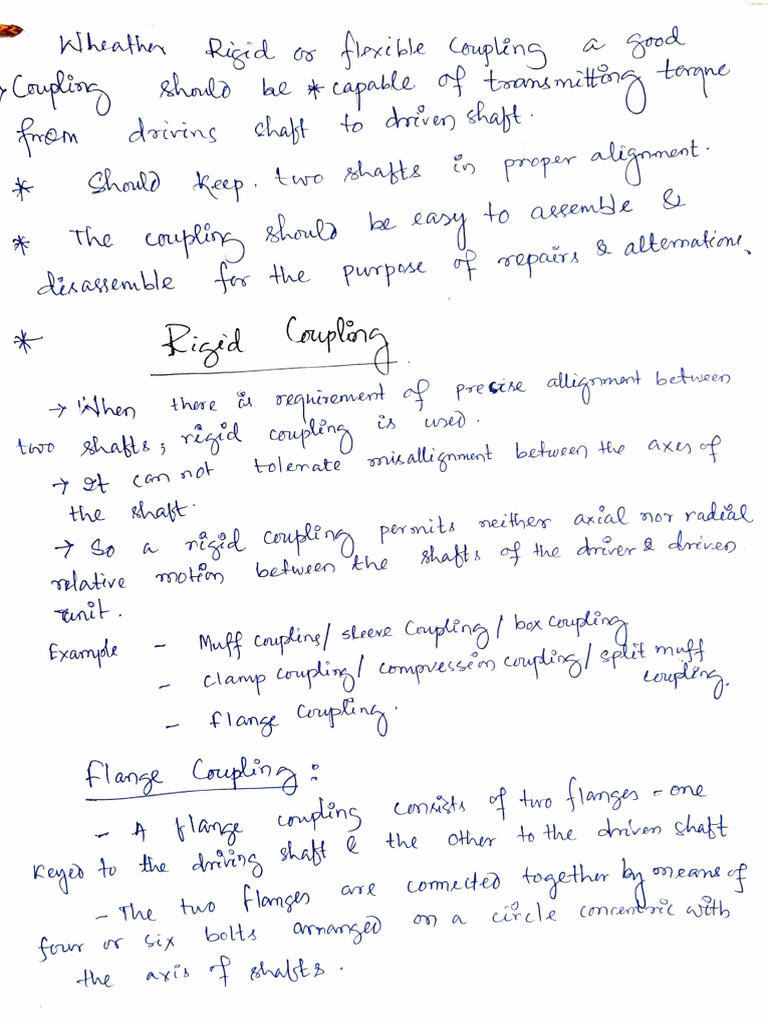 Wheather Rigid or flexible Coupling a good
→ Coupling should be * capable of transmitting torque
from driving shaft to driven shaft.
* Should keep. two shafts in proper alignment.
* The coupling should be easy to assemble &
disassemble for the purpose of repairs & alternations.
* Rigid Coupling
→ When there is requirement of precise allignment between
two shafts, rigid coupling is used.
→ It can not tolerate misallignment between the axes of
the shaft.
→ So a rigid coupling permits neither axial nor radial
relative motion between the shafts of the driver & driven
unit.
Example - Muff coupling/ sleeve Coupling / box coupling
- clamp coupling/ compression coupling/ split muff
coupling.
- flange coupling.
Flange Coupling :
- A flange coupling consists of two flanges - one
keyed to the driving shaft & the other to the driven shaft
- The two flanges are connected together by means of
four or six bolts arranged on a circle concentric with
the axis of shafts.